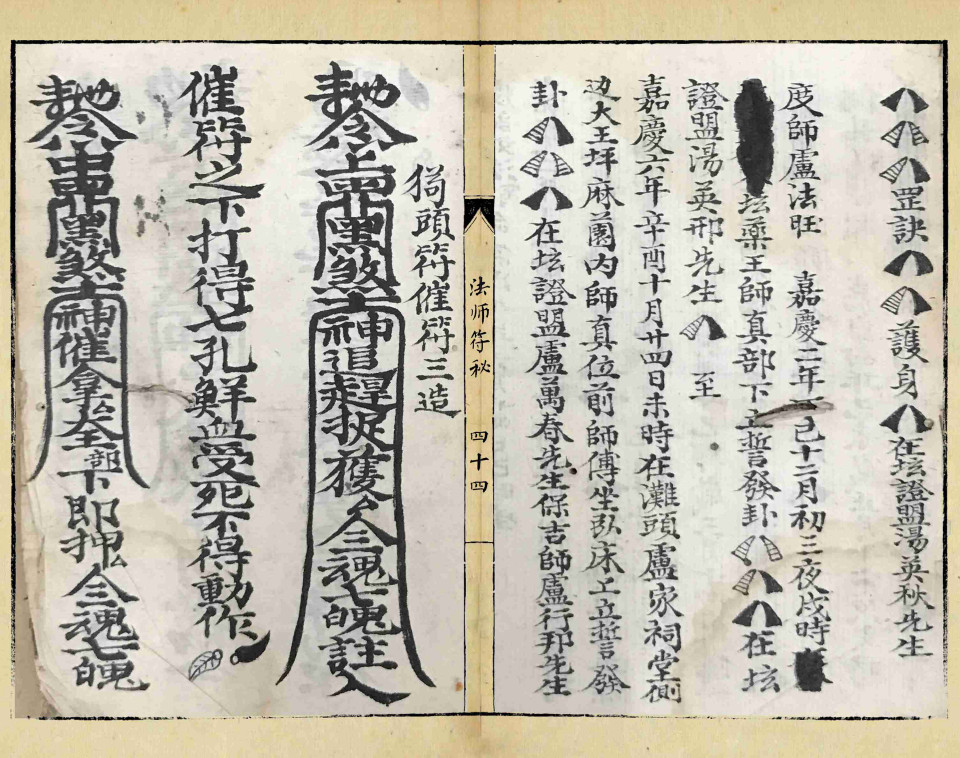 罡訣 護身 在坛證盟湯英秋先生
度師盧法旺 嘉慶二年 巳十二月初三夜戌時
坛藥王師真部下立誓發卦 在坛
證盟湯英邢先生 至
嘉慶六年辛酉十月廿四日未時在灘頭盧家祠堂側
边大王坪麻薗內師真位前師傅坐卧床上立誓發
卦 在坛證盟盧萬春先生保吉師盧行邦先生
法师符秘 四十四
猗頭符催符三造
神追趕捉獲 令三魂七魄註
催符之下打得七孔鮮血受死不得動作
煞 神催拿 全部下即押 令三魂七魄